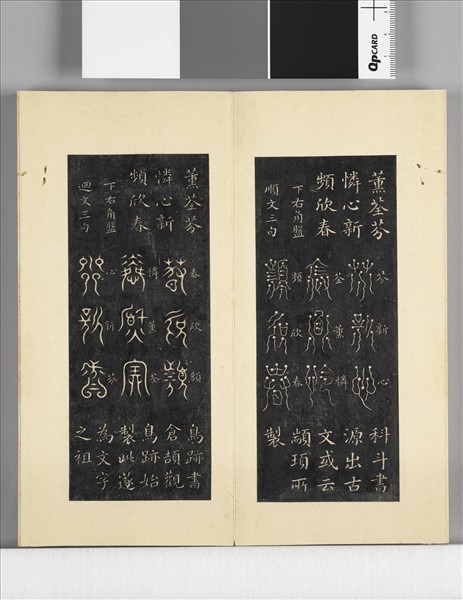 QPCARD
薰荃芬
憐心新
頻欣春
下右角盤
順文三句
芬新心
荃薰憐
頻欣春
科斗書
源出古
文或云
顓頊所
製
薰荃芬
憐心新
頻欣春
下右角盤
迴文三句
春欣頻
憐薰荃
心新芬
鳥跡書
倉頡觀
鳥跡始
製此遂
為文字
之祖